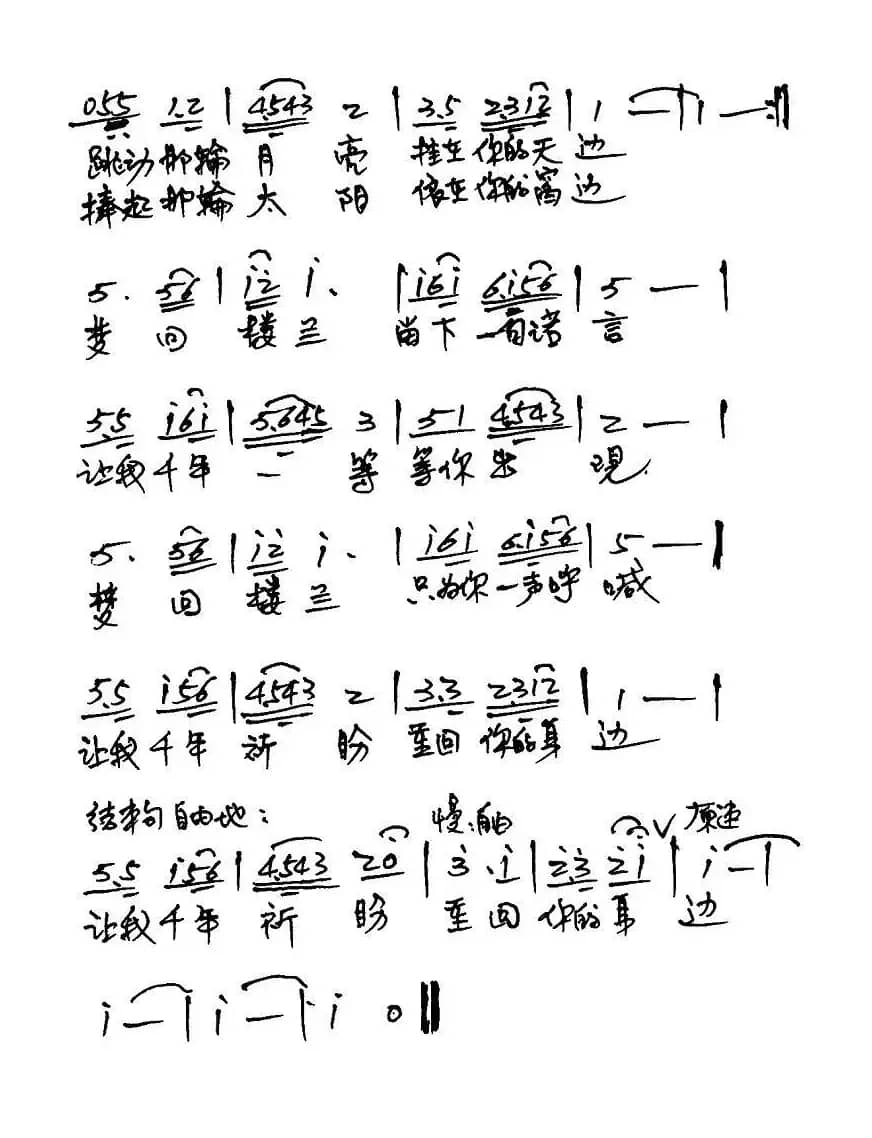 055 1.2 | 4543 2 | 3.5 2.312 | 1 — | 1 — :‖
跳动那輪月亮 挂在你的天边
捧起那輪太阳 偎在你的窩边
5. 56 | i2 i. | i6i 6.i56 | 5 — |
梦回楼兰 留下一句诺言
5.5 i6i | 5.645 3 | 51 4543 | 2 — |
让我千年一等 等你出現
5. 56 | i2 i. | i6i 6.i56 | 5 — |
梦回楼兰 只为你一声呼喊
5.5 i56 | 4543 2 | 3.3 2312 | 1 — |
让我千年祈盼 重回你的耳边
结束句自由地: 慢.自由 原速
5.5 i56 | 4543 20 | 3 .i | 2.3 2i | i — |
让我千年祈盼 重回你的耳边
i — | i — | i 0 ‖